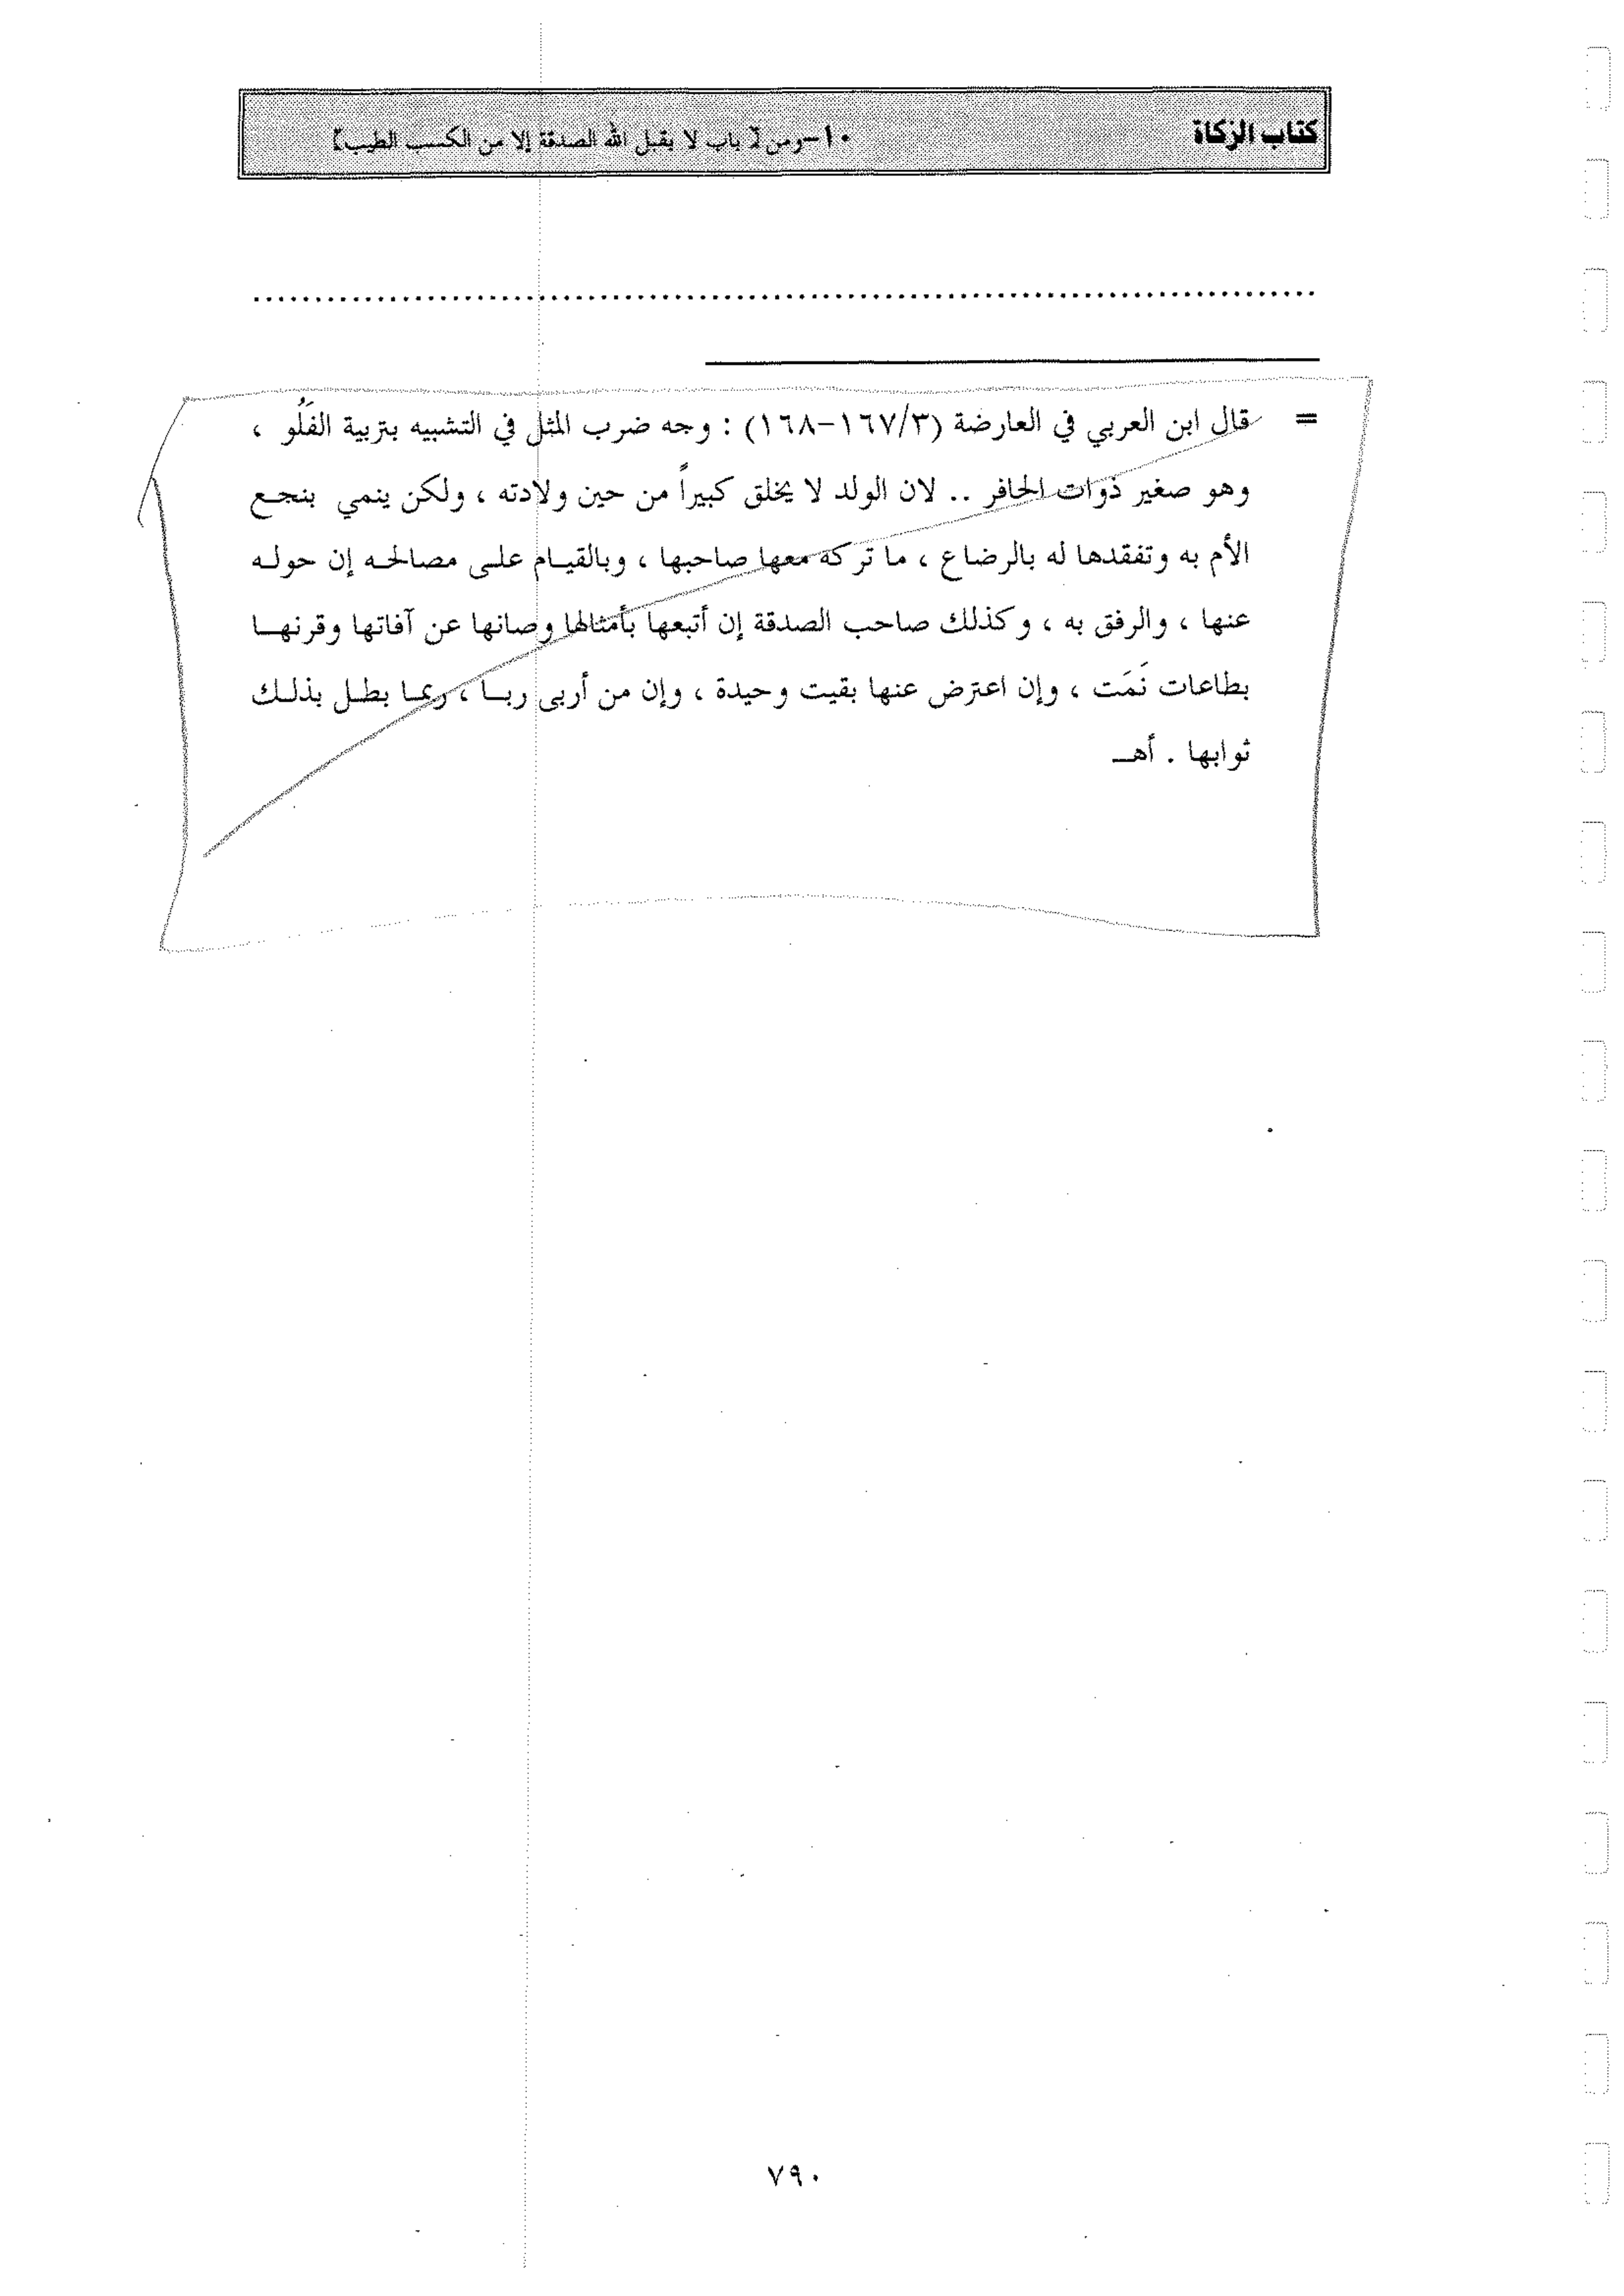 كتاب الزكاة
١٠-ومن [ باب لا يقبل الله الصدقة إلا من الكسب الطيب]
................................................................................
= قال ابن العربي في العارضة (١٦٧/٣-١٦٨) : وجه ضرب المثل في التشبيه بتربية الفَلُو ،
وهو صغير ذوات الحافر .. لان الولد لا يخلق كبيراً من حين ولادته ، ولكن ينمي بنجع
الأم به وتفقدها له بالرضاع ، ما تركه معها صاحبها ، وبالقيام على مصالحه إن حوله
عنها ، والرفق به ، وكذلك صاحب الصدقة إن أتبعها بأمثالها وصانها عن آفاتها وقرنها
بطاعات نَمَت ، وإن اعترض عنها بقيت وحيدة ، وإن من أربى ربا ، ربما بطل بذلك
ثوابها . أهـ
٧٩٠